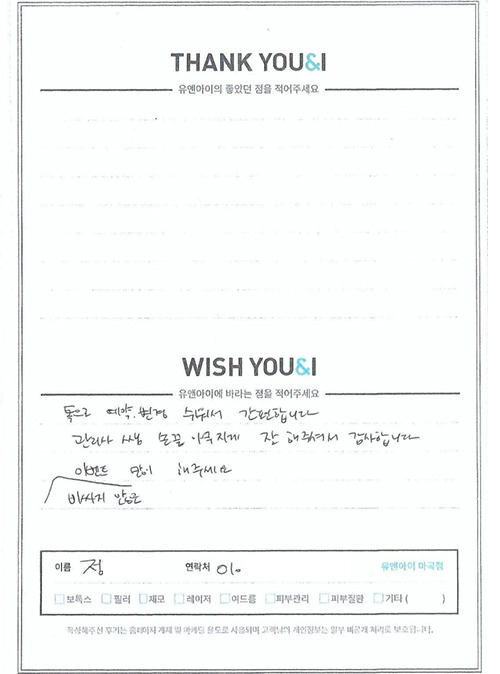 THANK YOU&I
유앤아이의 좋았던 점을 적어주세요
WISH YOU&I
유앤아이에 바라는 점을 적어주세요
톡으로 예약.변경 쉬워서 간편합니다
관리사 쌤 손끝 야무지게 잘 해주셔서 감사합니다
이벤트 많이 해주세요
비싸지 않은
이름 정 연락처 010 유앤아이 마곡점
보톡스 필러 제모 레이저 여드름 피부관리 피부질환 기타 ( )
작성해주신 후기는 홈페이지 게재 및 마케팅 용도로 사용되며 고객님의 개인정보는 일부 비공개 처리로 보호됩니다.